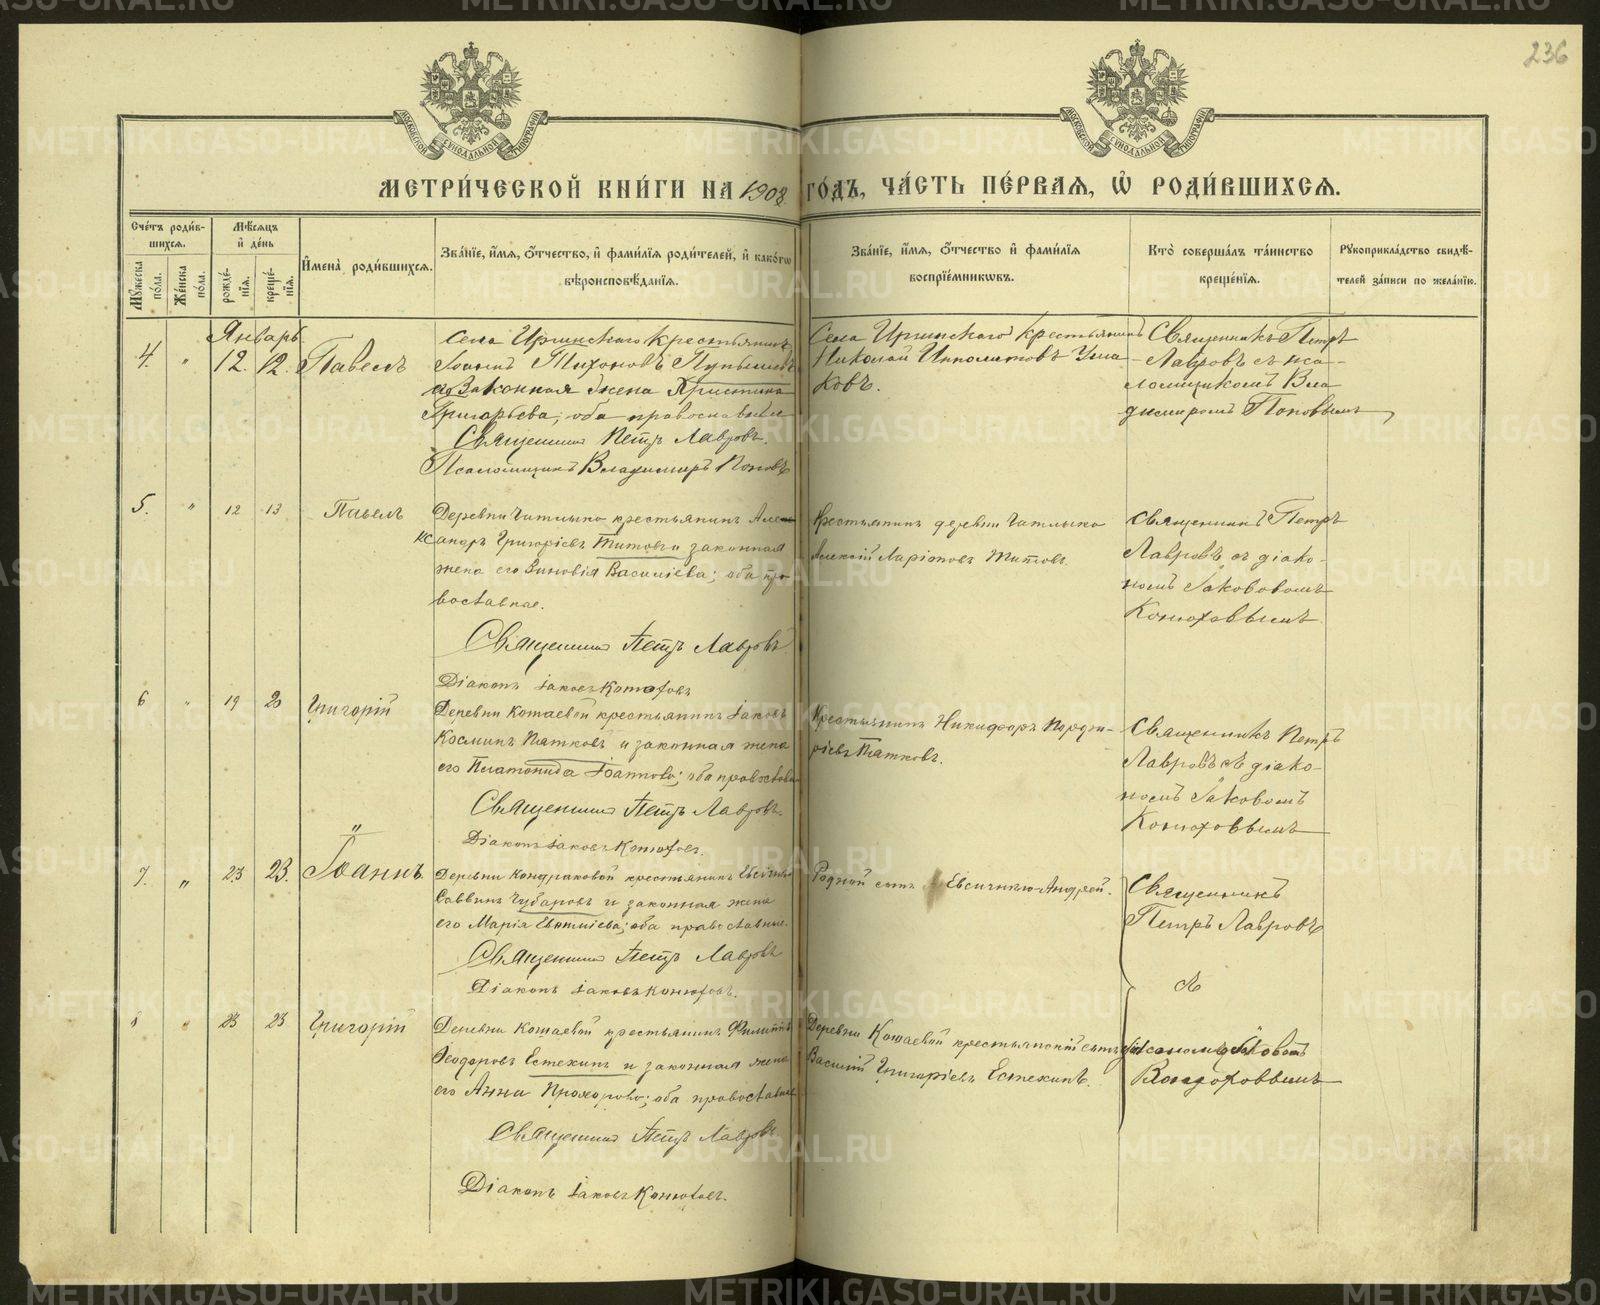 236
МОСКОВСКОЙ СѴНОДАЛЬНОЙ ТИПОГРАФІИ
МОСКОВСКОЙ СѴНОДАЛЬНОЙ ТИПОГРАФІИ
МЕТРИ́ЧЕСКОЙ КНИ́ГИ НА 1908 ГО́ДЪ, ЧА́СТЬ ПЕ́РВАЯ, Ѡ҆ РОДИ́ВШИХСЯ.
Сче́тъ роди́в-
шихся.
Му́жеска по́ла.
Же́нска по́ла.
Мѣ́сяцъ
и҆ де́нь
рожде́-
нїя.
креще́-
нїя.
И҆мена̀ роди́вшихся.
Зва́нїе, и҆́мя, ѻ҆́тчество, и҆ фами́лїя роди́телей, и҆ како́гѡ
вѣроисповѣ́данїя.
Зва́нїе, и҆́мя, ѻ҆́тчество и҆ фами́лїя
воспрїе́мникѡвъ.
Кто̀ соверша́лъ та́инство
креще́нїя.
Рукоприкла́дство свидѣ́-
телей за́писи по жела́нїю.
Январь
4. " 12. 12. Павелъ
Села Иргинскаго крестьянинъ
Іоаннъ Тихоновъ
и законная жена Христина
Григорьева, оба православные
Священникъ Петръ Лавровъ.
Псаломщикъ Владимиръ Поповъ
Села Иргинскаго крестьянинъ
Николай Ипполитовъ Уша-
ковъ.
Священникъ Петръ
Лавровъ съ пса-
ломщикомъ Вла
димиромъ Поповымъ
5. " 12 13 Павелъ
Деревни Чатлыка крестьянинъ Алек
сандръ Григоріевъ Титовъ и законная
жена его Зиновія Василіева; оба пра-
вославные.
Священникъ Петръ Лавровъ
Діаконъ Іаковъ Конюховъ
Крестьянинъ деревни Чатлыка
Алексій Ларіоновъ Титовъ.
Священникъ Петръ
Лавровъ съ діако-
номъ Іаковомъ
Конюховымъ
6 " 19 20 Григорій
Деревни Кошаевой крестьянинъ Іаковъ
Косминъ Пятковъ и законная жена
его Платонида Іоаннова; оба православн
Священникъ Петръ Лавровъ.
Діаконъ Іаковъ Конюховъ.
Крестьянинъ Никифоръ Порфи-
ріевъ Пятковъ.
Священникъ Петръ
Лавровъ съ діако-
номъ Іаковомъ
Конюховымъ
"
7. " 23 23. Іоаннъ
Деревни Кондраковой крестьянинъ
Саввинъ Чубаровъ и законная жена
его Марія Евѳиміева; оба православные.
Священникъ Петръ Лавровъ
Діаконъ Іаковъ Конюховъ.
Родной Андрей.
Священникъ
Петръ Лавровъ
съ
8 " 23 23 Григорій
Деревни Кошаевой крестьянинъ Филиппъ
Ѳеодоровъ Естехинъ и законная жена
его Анна Прохорова; оба православные
Священникъ Петръ Лавровъ
Діаконъ Іаковъ Конюховъ.
Деревни Кошаевой крестьянскій сынъ
Василій Григоріевъ Естехинъ.
Іаковомъ
Конюховымъ